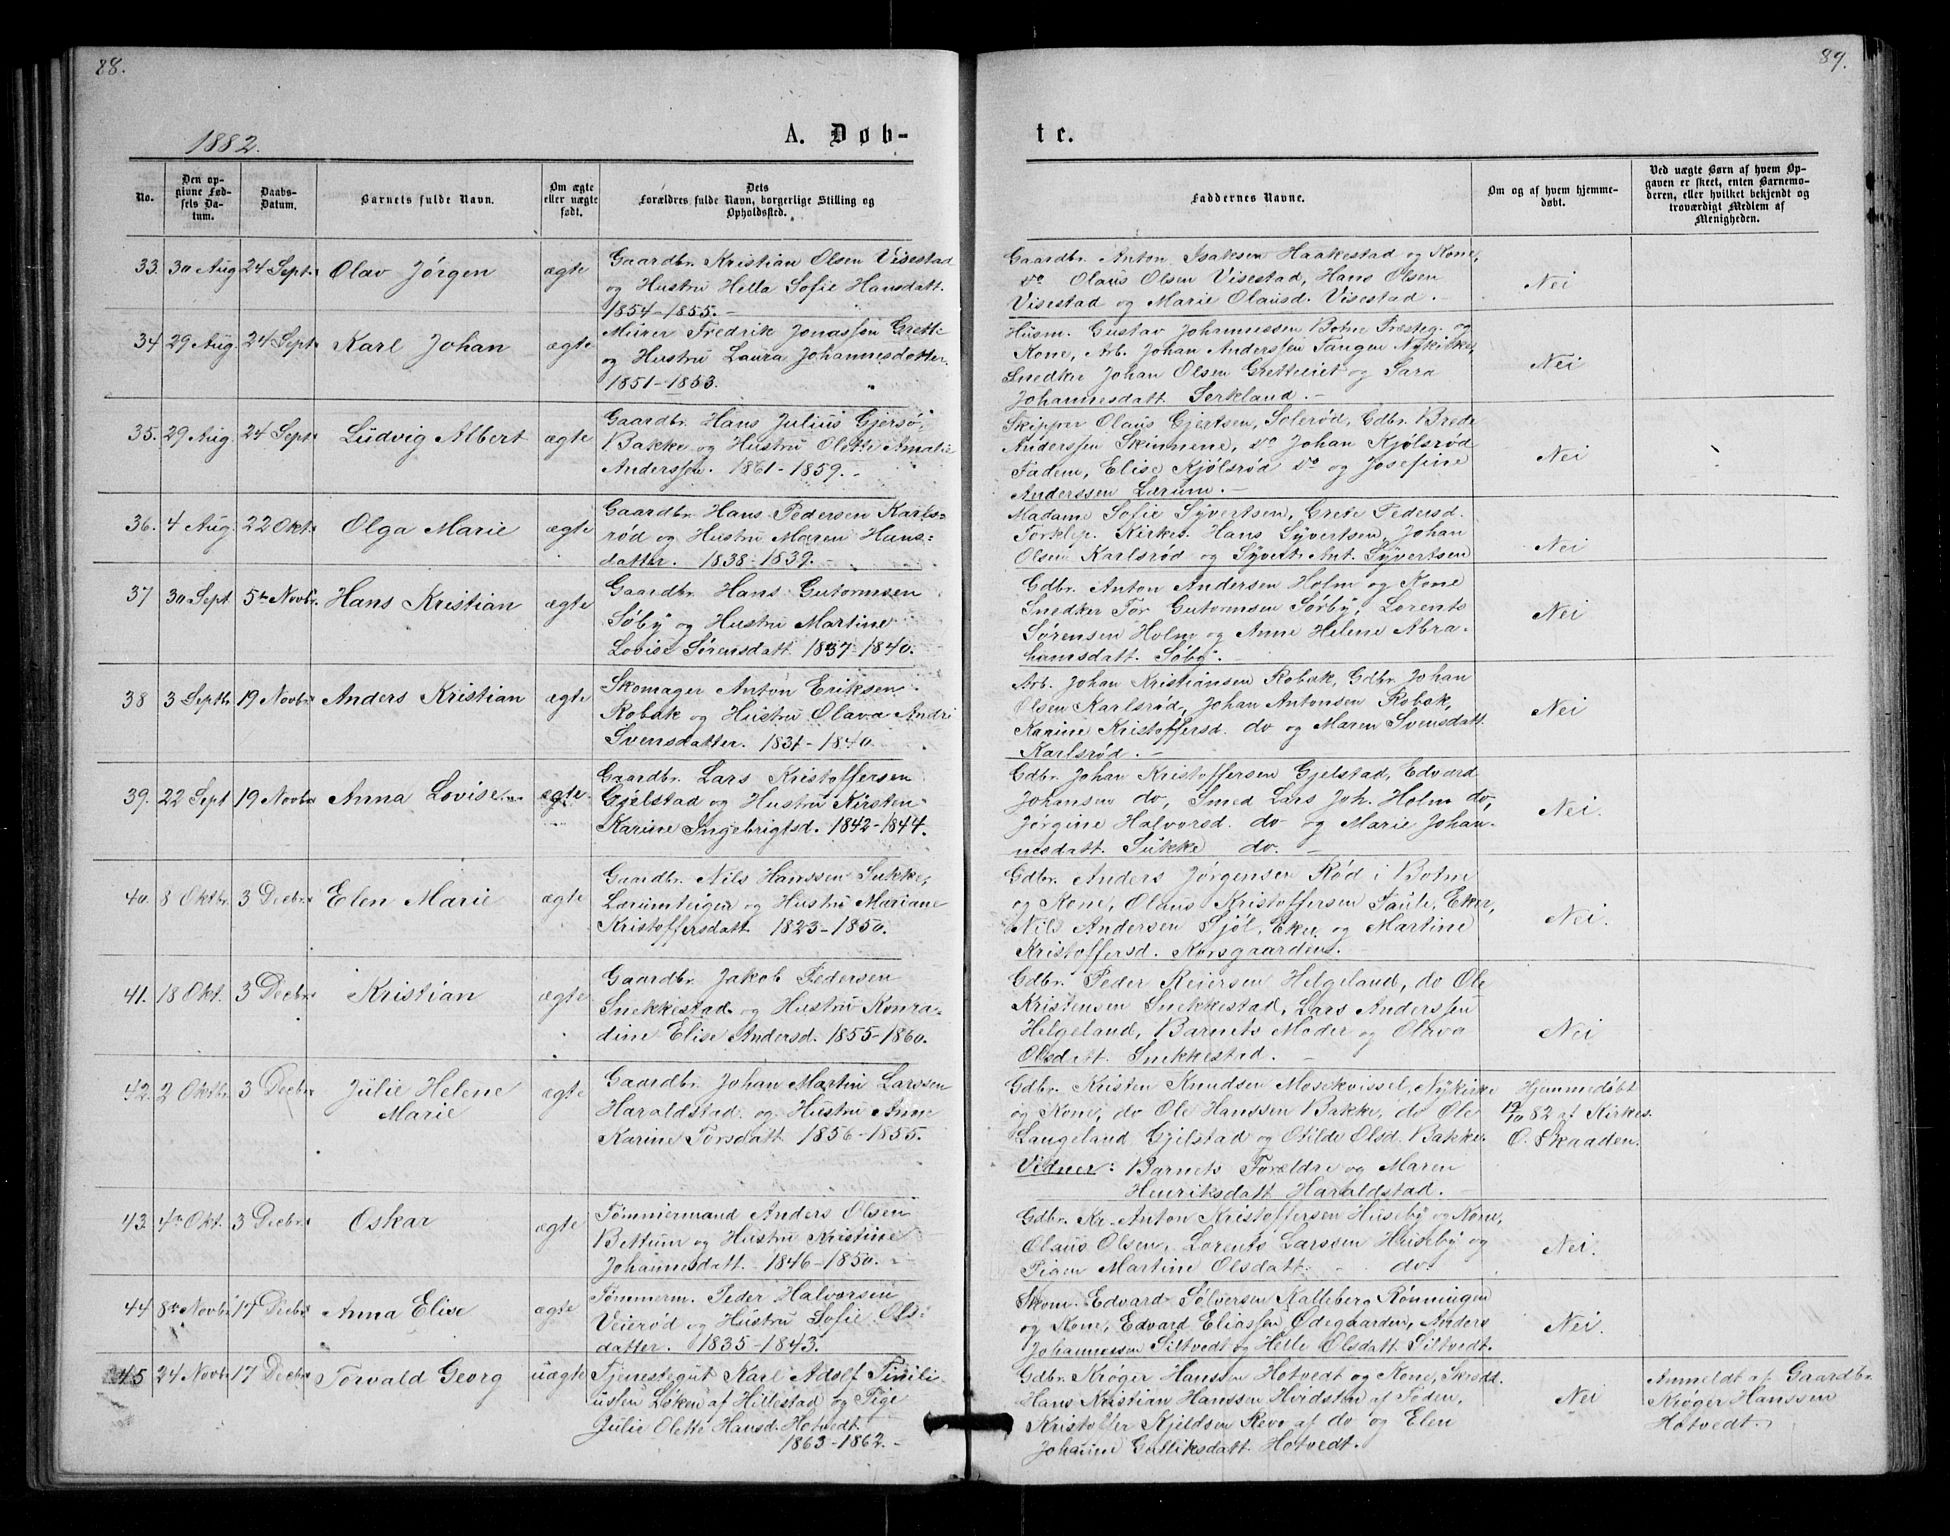 88.
1882.
A. Døb-
No.
Den op-
givne Fød-
sels Da-
tum.
Daabs-
Datum.
Barnets fulde Navn.
Om ægte
eller uægte
født.
Dets
Forældres fulde Navn, borgerlige Stilling og
Opholdssted.
33. 30 Aug 24 Sept. Olav Jørgen ægte
Gaardbr. Kristian Olsen Visestad
og Hustru Hella Sofie Hansdatt.
1854-1855.-
34 29 Aug 24 Sept. Karl Johan ægte
Murer Fredrik Jonassen Grett-
og Hustru Laura Johannesdatter
1851-1853.
35. 29 Aug. 24 Sept. Ludvig Albert ægte
Gaardbr. Hans Julius Gjersø,
Bakke og Hustru Olette Amalie
Anderssen. 1861-1859.-
36. 4 Aug. 22 Okt. Olga Marie ægte
Gaardbr. Hans Pedersen Karls-
rød og Hustru Maren Hans-
datter. 1838-1839.
37 30 Sept 5te Novbr. Hans Kristian ægte
Gaardbr. Hans Gutormsen
Søby og Hustru Martine
Lovise Sørensdatt. 1837-1840.
38 3 Septbr 19 Novbr Anders Kristian ægte
Skomager Anton Eriksen
Robak og Hustru Olava Andri
Svensdatter. 1831-1840.
39. 22 Sept 19 Novbr Anna Lovise ægte
Gaardbr. Lars Kristoffersen
Gjelstad og Hustru Kirsten
Karine Ingebrigtsd. 1842-1844.
40. 8 Oktbr. 3 Decbr. Elen Marie ægte
Gaardbr. Nils Hanssen Sukke,
Lærumteigen og Hustru Mariane
Kristoffersdatt. 1823-1850.
41. 18 Okt. 3 Decbr. Kristian ægte
Gaardbr. Jakob Pedersen
Snekkestad og Hustru Konra-
dine Elise Andersd. 1855-1860.
42. 2 Oktbr. 3 Decbr. Julie Helene ægte
Marie
Gaardbr. Johan Martin Larssen
Haraldstad og Hustru Anne
Karine Torsdatt 1856-1855.
43. 4de Okt. 3 Decbr. Oskar ægte
Tømmermand Anders Olsen
Bettum og Hustru Kristine
Johannesdatt. 1846-1850.
44 8de Novbr. 17 Decbr. Anna Elise ægte
Tømmerm. Peder Halvorsen
Veierød og Hustru Sofie Ols-
datter. 1835-1843.
45 24 Novbr. 17 Decbr. Torvald Georg uægte
Tjenestegut Karl Adolf Tinili-
usten Løken af Hillestad og Pige
Julie Olette Hansd. Hotvedt.
1863-1862.-
89.
te.
Faddernes Navne.
Om og af hvem hjemme-
døbt.
Ved uægte Børn af hvem Op-
gaven er skeet, enten Barnemo-
deren, eller hvilket bekjendt og
troværdigt Medlem af
Menigheden.
Gaardbr. Anton Isaksen Haakestad og Kone,
do Olaus Olsen Visestad, Hans Olsen
Visestad og Marie Olausd. Visestad.-
Nei
Husm. Gustav Johannessen Botne Præsteg. og
Kone, Arb. Johan Anderssen Tangen Nykirke,
Snedker Johan Olsen Gretteeiet og Sara
Johannesdatt. Serkland.-
Nei
Skipper Olaus Gjertsen, Solerød, Gdbr. Brede
Anderssen Skinmene, do Johan Kjølsrød
Fadem, Elise Kjølsrød do og Josefine
Anderssen Lærum.-
Nei
Madame Sofie Syvertsen, Grete Pedersd.
Torklep. Kirkes. Hans Syvertsen, Johan
Olsen Karlsrød og Syvert Ant. Syvertsen
Nei
Gdbr. Anton Andersen Holm og Kone
Snedker Tor Gutormsen Sørby, Lorents
Sørensen Holm og Anne Helene Abra-
hamsdatt. Søby.
Nei
Arb. Johan Kristiansen Robak, Gdbr. Johan
Olsen Karlsrød, Johan Antonsen Robak,
Karine Kristoffersd. do og Maren Svensdatt.
Karlsrød.-
Nei
Gdbr. Johan Kristoffersen Gjelstad, Edvard
Johansen do, Smed Lars Joh. Holm do,
Jørgine Halvorsd. do og Marie Johan-
nesdatt. Sukke do.-
Nei.
Gdbr. Anders Jørgensen Rød i Botne
og Kone, Olaus Kristoffersen Taule, Eker,
Nils Andersen Sjøl, Eker og Martine
Kristoffersd. Korsgaarden.-
Nei.
Gdbr. Peder Reiersen Helgeland, do Ole
Kristensen Snekkestad, Lars Anderssen
Helgeland, Barnets Moder og Olava
Olsdatt. Snekkestad.
Nei
Gdbr. Kristen Knudsen Mosekvissel, Nykirke
og Kone, do Ole Hanssen Bakke, do Ole
Langeland Gjelstad og Otilde Olsd. Bakke.
Vidner: Barnets Forældre og Maren
Henriksdatt. Haraldstad.
Hjemmedøbt
19/10 82 af Kirkes.
O. Skaaden.
Gdbr. Kr. Anton Kristoffersen Huseby og Kone,
Olaus Olsen, Lorents Larssen Huseby og
Pigen Martine Olsdatt. do
Nei.
Skom. Edvard Sølversen Kalleberg Rønningen
og Kone, Edvard Eliassen Ødegaarden, Anders
Johannessen Tiltvedt og Helle Olsdatt. Tiltvedt.
Nei.
Gdbr. Krøger Hanssen Hotvedt og Kone, Skredd.
Hans Kristian Hanssen Hvidsten af Foden,
Kristoffer Kjeldsen Revo af do og Elen
Johanne Gulliksdatt. Hotvedt.
Nei
Anmeldt af Gaardbr.
Krøger Hanssen
Hotvedt.